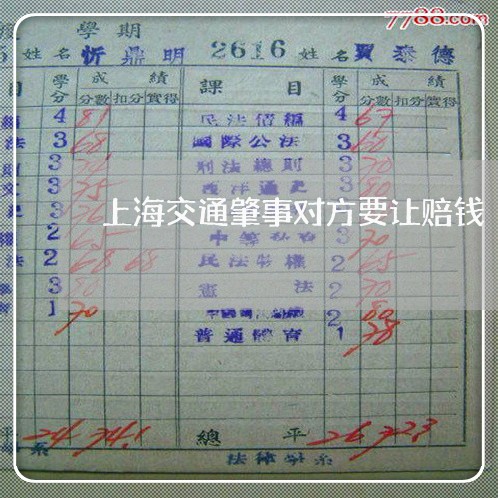 7788.com
學期
姓名 忻鼎明 2616 姓名 賈泰德
目 學分 成績 課目 學分 成績
分數 扣分 實得 分數 扣分 實得
4 81 民法債編 4 67
法 3 68 國際公法 3 60
3 刑法總則 3 70
3 75 西洋通史 3 80
上海交通肇事对方要让赔钱
2 65 3 70
法 2 68 68 民法物權 2 65
3 80 憲法 2 70
1 70 2 80
普通體育 1 78
平 24 74.1 總平 26 72.3
系 法律學系